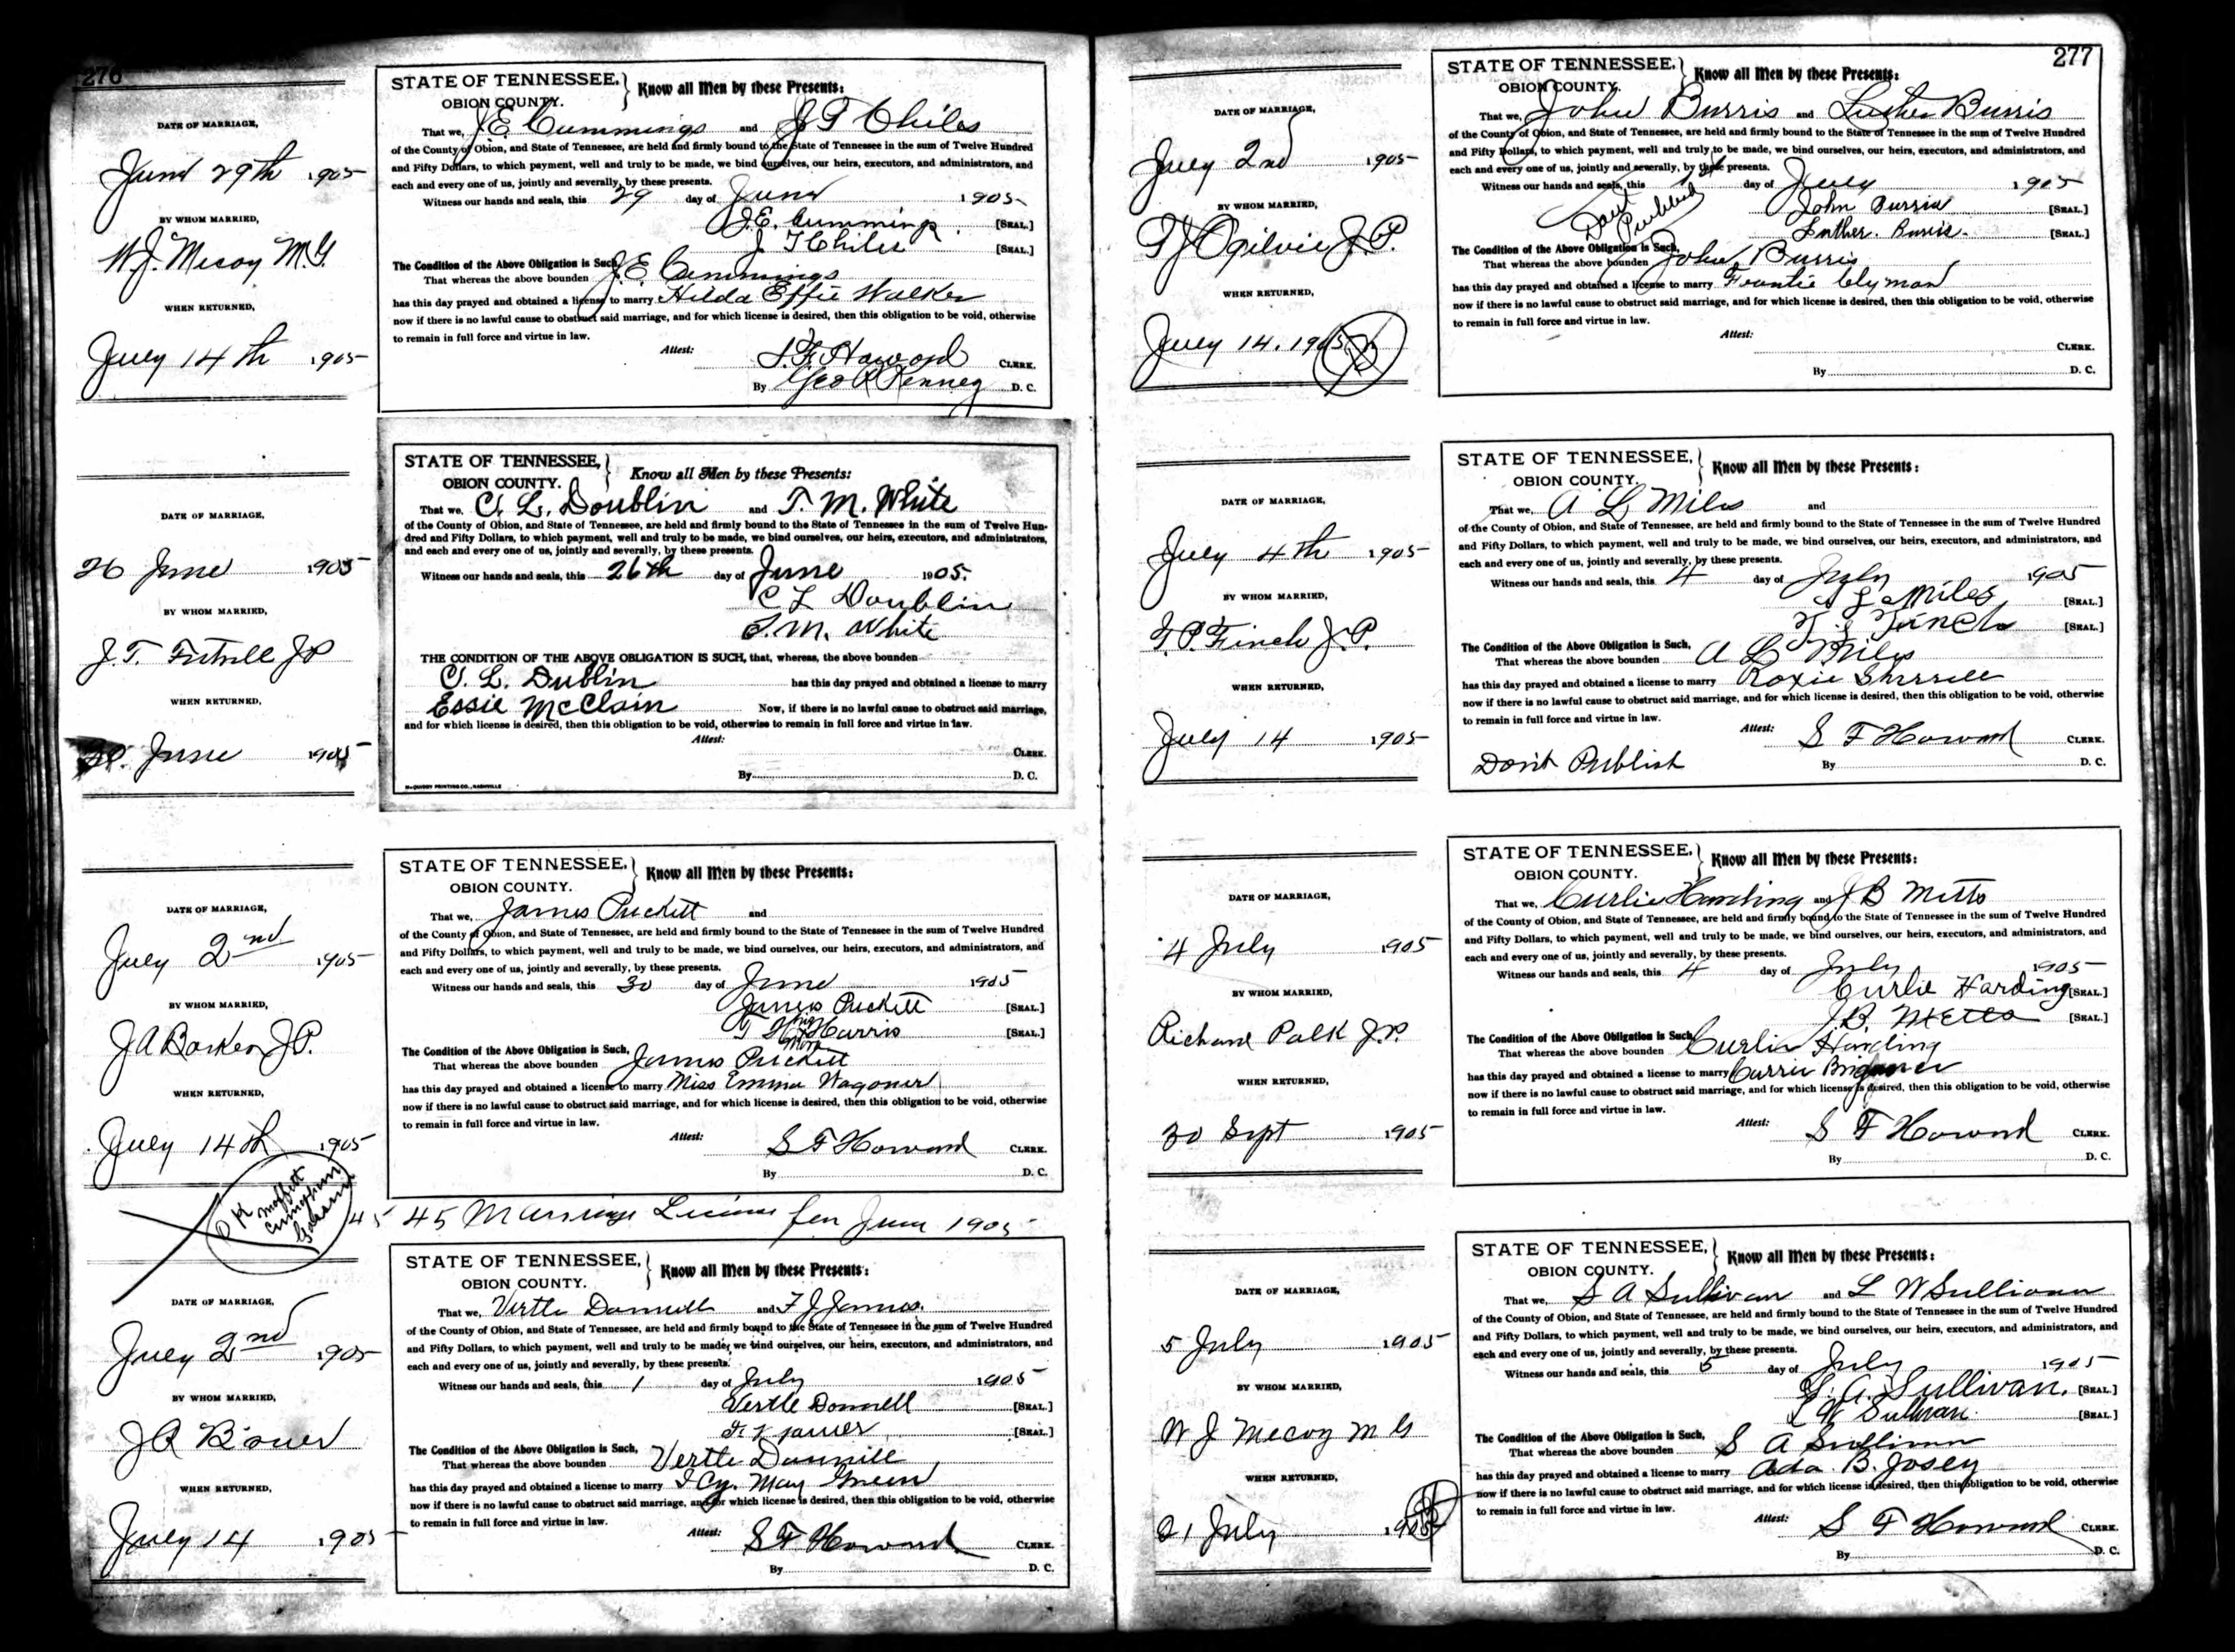 276
DATE OF MARRIAGE,
June 29th 1905
BY WHOM MARRIED,
W.J. Mecoy M.G.
WHEN RETURNED,
July 14th 1905
STATE OF TENNESSEE,
OBION COUNTY.
Know all Men by these Presents:
That we, J E Cummings and J T Chiles
of the County of Obion, and State of Tennessee, are held and firmly bound to the State of Tennessee in the sum of Twelve Hundred
and Fifty Dollars, to which payment, well and truly to be made, we bind ourselves, our heirs, executors, and administrators, and
each and every one of us, jointly and severally, by these presents.
Witness our hands and seals, this 29 day of June 1905
J.E. Cummings [SEAL.]
J T Chiles [SEAL.]
The Condition of the Above Obligation is Such,
That whereas the above bounden J. E. Cummings
has this day prayed and obtained a license to marry Hilda Effie Walker
now if there is no lawful cause to obstruct said marriage, and for which license is desired, then this obligation to be void, otherwise
to remain in full force and virtue in law.
Attest: S. F. Howard CLERK.
By Geo R Kenney D. C.
DATE OF MARRIAGE,
26 June 1905
BY WHOM MARRIED,
J. T. Futrell JP
WHEN RETURNED,
June 1905
STATE OF TENNESSEE,
OBION COUNTY.
Know all Men by these Presents:
That we, C. L. Doublin and T. M. White
of the County of Obion, and State of Tennessee, are held and firmly bound to the State of Tennessee in the sum of Twelve Hun-
dred and Fifty Dollars, to which payment, well and truly to be made, we bind ourselves, our heirs, executors, and administrators,
and each and every one of us, jointly and severally, by these presents.
Witness our hands and seals, this 26th day of June 1905.
C L Doublin
T. M. White
THE CONDITION OF THE ABOVE OBLIGATION IS SUCH, that, whereas, the above bounden
C. L. Dublin has this day prayed and obtained a license to marry
Essie McClain Now, if there is no lawful cause to obstruct said marriage,
and for which license is desired, then this obligation to be void, otherwise to remain in full force and virtue in law.
Attest:
CLERK.
By D. C.
McQUIDDY PRINTING CO., NASHVILLE
DATE OF MARRIAGE,
July 2nd 1905
BY WHOM MARRIED,
J A Barker J.P.
WHEN RETURNED,
July 14th 1905
STATE OF TENNESSEE,
OBION COUNTY.
Know all Men by these Presents:
That we, James Puckett and
of the County of Obion, and State of Tennessee, are held and firmly bound to the State of Tennessee in the sum of Twelve Hundred
and Fifty Dollars, to which payment, well and truly to be made, we bind ourselves, our heirs, executors, and administrators, and
each and every one of us, jointly and severally, by these presents.
Witness our hands and seals, this 30 day of June 1905
James Puckett [SEAL.]
T H Harris [SEAL.]
The Condition of the Above Obligation is Such,
That whereas the above bounden James Puckett
has this day prayed and obtained a license to marry Miss Emma Wagoner
now if there is no lawful cause to obstruct said marriage, and for which license is desired, then this obligation to be void, otherwise
to remain in full force and virtue in law.
Attest: S F Howard CLERK.
By D. C.
O K Moffett
45 45 Marriage License for June 1905
DATE OF MARRIAGE,
July 2nd 1905
BY WHOM MARRIED,
J R
WHEN RETURNED,
July 14 1905
STATE OF TENNESSEE,
OBION COUNTY.
Know all Men by these Presents:
That we, Vertle Donnell and F J James.
of the County of Obion, and State of Tennessee, are held and firmly bound to the State of Tennessee in the sum of Twelve Hundred
and Fifty Dollars, to which payment, well and truly to be made, we bind ourselves, our heirs, executors, and administrators, and
each and every one of us, jointly and severally, by these presents.
Witness our hands and seals, this 1 day of July 1905
Vertle Donnell [SEAL.]
[SEAL.]
The Condition of the Above Obligation is Such,
That whereas the above bounden Vertle Donnell
has this day prayed and obtained a license to marry Icy. May Green
now if there is no lawful cause to obstruct said marriage, and for which license is desired, then this obligation to be void, otherwise
to remain in full force and virtue in law.
Attest: S F Howard CLERK.
By D. C.
277
DATE OF MARRIAGE,
July 2nd 1905
BY WHOM MARRIED,
T J Ogilvie J. P.
WHEN RETURNED,
July 14. 1905
STATE OF TENNESSEE,
OBION COUNTY.
Know all Men by these Presents:
That we, John Burris and Luther Burris
of the County of Obion, and State of Tennessee, are held and firmly bound to the State of Tennessee in the sum of Twelve Hundred
and Fifty Dollars, to which payment, well and truly to be made, we bind ourselves, our heirs, executors, and administrators, and
each and every one of us, jointly and severally, by these presents.
Witness our hands and seals, this 1st day of July 1905
Dont Publish
John Burris [SEAL.]
Luther. Burris. [SEAL.]
The Condition of the Above Obligation is Such,
That whereas the above bounden John Burris
has this day prayed and obtained a license to marry Frontie Clymon
now if there is no lawful cause to obstruct said marriage, and for which license is desired, then this obligation to be void, otherwise
to remain in full force and virtue in law.
Attest:
CLERK.
By D. C.
DATE OF MARRIAGE,
July 4th 1905
BY WHOM MARRIED,
T. P. Finch J. P.
WHEN RETURNED,
July 14 1905
STATE OF TENNESSEE,
OBION COUNTY.
Know all Men by these Presents:
That we, A L Miles and
of the County of Obion, and State of Tennessee, are held and firmly bound to the State of Tennessee in the sum of Twelve Hundred
and Fifty Dollars, to which payment, well and truly to be made, we bind ourselves, our heirs, executors, and administrators, and
each and every one of us, jointly and severally, by these presents.
Witness our hands and seals, this 4 day of July 1905
A L Miles [SEAL.]
Finch [SEAL.]
The Condition of the Above Obligation is Such,
That whereas the above bounden A L Miles
has this day prayed and obtained a license to marry Roxie Sherrell
now if there is no lawful cause to obstruct said marriage, and for which license is desired, then this obligation to be void, otherwise
to remain in full force and virtue in law.
Attest: S F Howard CLERK.
Don't Publish
By D. C.
DATE OF MARRIAGE,
4 July 1905
BY WHOM MARRIED,
Richard Polk J.P.
WHEN RETURNED,
30 Sept 1905
STATE OF TENNESSEE,
OBION COUNTY.
Know all Men by these Presents:
That we, Curlie Harding and J B Metts
of the County of Obion, and State of Tennessee, are held and firmly bound to the State of Tennessee in the sum of Twelve Hundred
and Fifty Dollars, to which payment, well and truly to be made, we bind ourselves, our heirs, executors, and administrators, and
each and every one of us, jointly and severally, by these presents.
Witness our hands and seals, this 4 day of July 1905
Curlie Harding [SEAL.]
J.B. Metts [SEAL.]
The Condition of the Above Obligation is Such,
That whereas the above bounden Curlie Harding
has this day prayed and obtained a license to marry Currie
now if there is no lawful cause to obstruct said marriage, and for which license is desired, then this obligation to be void, otherwise
to remain in full force and virtue in law.
Attest: S F Howard CLERK.
By D. C.
DATE OF MARRIAGE,
5 July 1905
BY WHOM MARRIED,
W J Mecoy M G
WHEN RETURNED,
21 July 1905
STATE OF TENNESSEE,
OBION COUNTY.
Know all Men by these Presents:
That we, S A Sullivan and L W Sullivan
of the County of Obion, and State of Tennessee, are held and firmly bound to the State of Tennessee in the sum of Twelve Hundred
and Fifty Dollars, to which payment, well and truly to be made, we bind ourselves, our heirs, executors, and administrators, and
each and every one of us, jointly and severally, by these presents.
Witness our hands and seals, this 5 day of July 1905
S. A. Sullivan. [SEAL.]
L W Sullivan. [SEAL.]
The Condition of the Above Obligation is Such,
That whereas the above bounden S A Sullivan
has this day prayed and obtained a license to marry Ada. B. Josey
now if there is no lawful cause to obstruct said marriage, and for which license is desired, then this obligation to be void, otherwise
to remain in full force and virtue in law.
Attest: S F Howard CLERK.
By D. C.